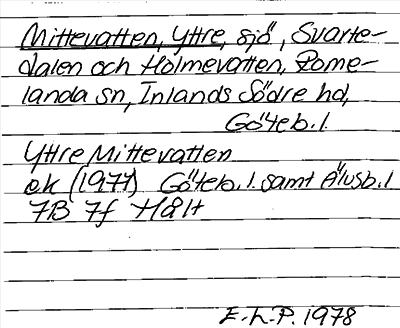 Mittevatten, Yttre, sjö, Svarte-
dalen och Holmevatten, Rome-
landa sn, Inlands Södre hd,
Göteb. l.
Yttre Mittevatten
ek (1977) Göteb. l. samt Älvsb. l
7B 7f Hålt
E.L.P. 1978